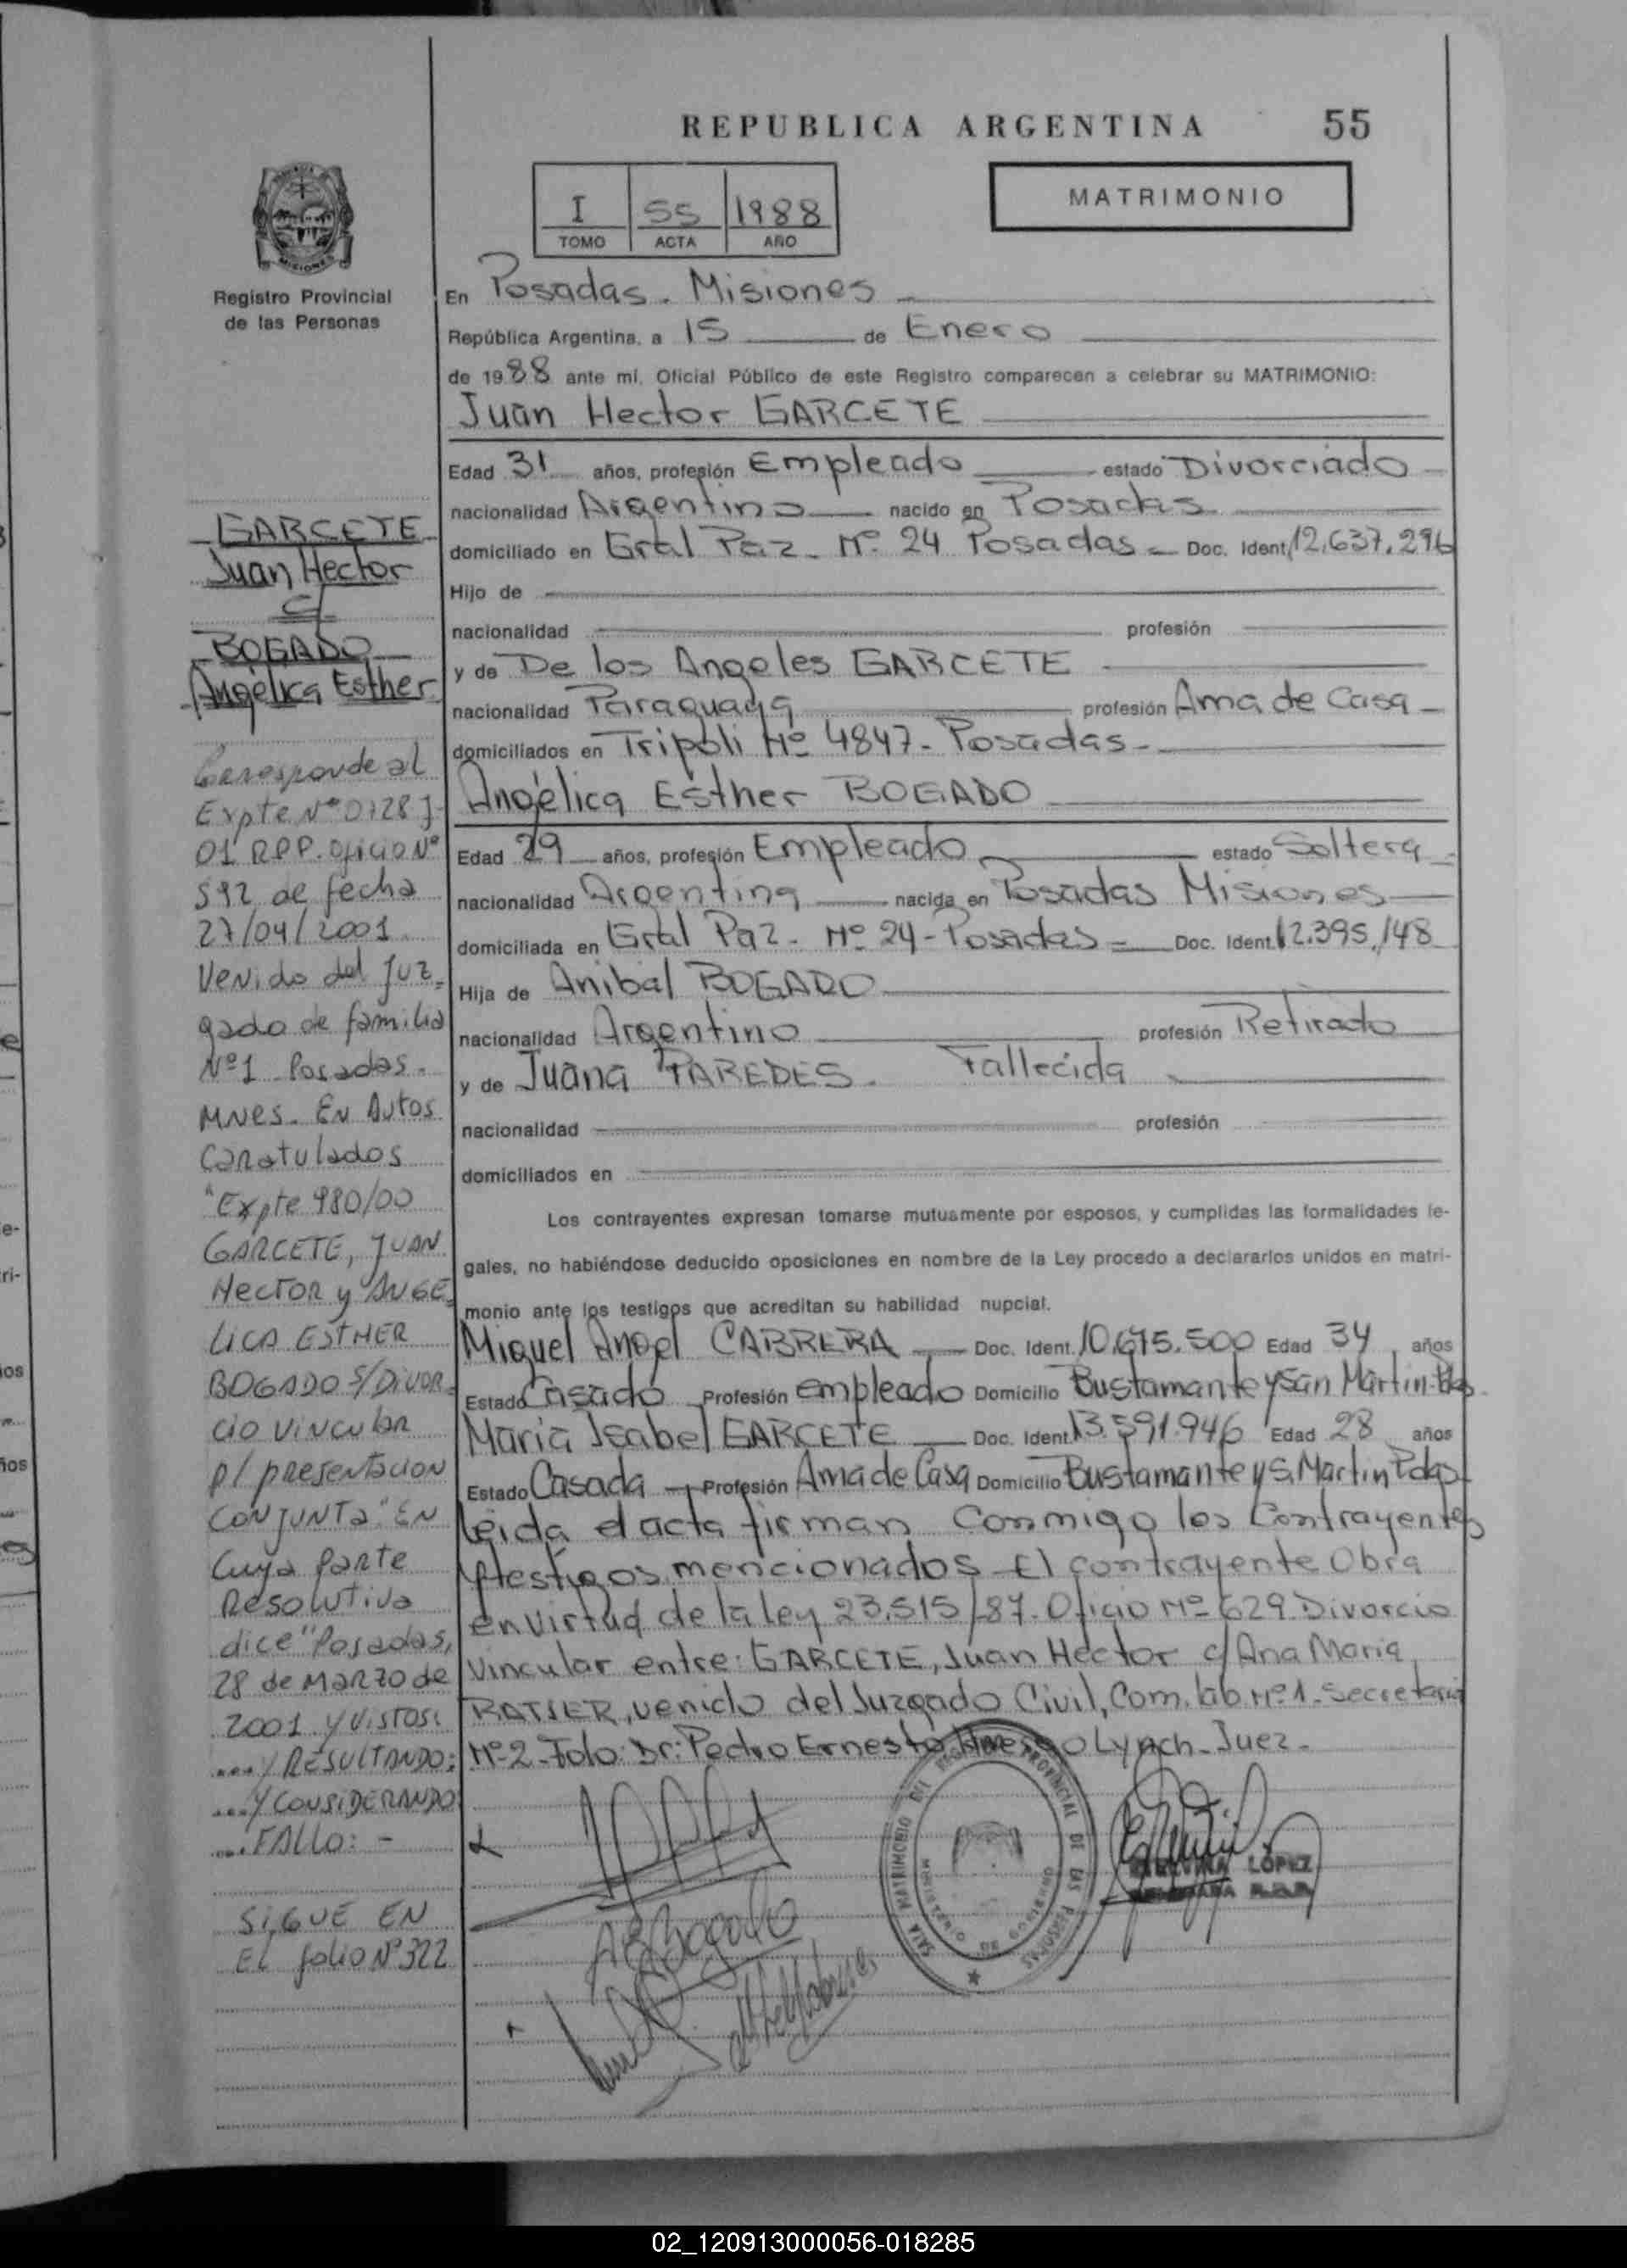 REPUBLICA ARGENTINA 55
I 55 1988
TOMO ACTA AÑO
MATRIMONIO
MISIONES
Registro Provincial
de las Personas
En Posadas. Misiones
República Argentina, a 15 de Enero
de 1988 ante mí, Oficial Público de este Registro comparecen a celebrar su MATRIMONIO:
Juan Hector GARCETE
Edad 31 años, profesión Empleado estado Divorciado
nacionalidad Argentino nacido en Posadas
domiciliado en Gral Paz. Nº 24 Posadas Doc. Ident. 12.637.296
Hijo de
nacionalidad profesión
y de De los Angeles GARCETE
nacionalidad Paraguaya profesión Ama de Casa
domiciliados en Tripoli Nº 4847 - Posadas -
Angélica Esther BOGADO
Edad 29 años, profesión Empleado estado Soltera
nacionalidad Argentina nacida en Posadas Misiones
domiciliada en Gral Paz - Nº 24 - Posadas Doc. Ident. 12.395.148
Hija de Anibal BOGADO
nacionalidad Argentino profesión Retirado
y de Juana PAREDES. Fallecida
nacionalidad profesión
domiciliados en
Los contrayentes expresan tomarse mutuamente por esposos, y cumplidas las formalidades le-
gales, no habiéndose deducido oposiciones en nombre de la Ley procedo a declararlos unidos en matri-
monio ante los testigos que acreditan su habilidad nupcial.
Miguel Angel CABRERA Doc. Ident. 10.675.500 Edad 34 años
Estado Casado Profesión empleado Domicilio Bustamante y San Martin-Pdas.
Maria Isabel GARCETE Doc. Ident. 13.591.946 Edad 28 años
Estado Casada Profesión Ama de Casa Domicilio Bustamante y S. Martin Pdas
Leida el acta firman conmigo los Contrayentes
y testigos mencionados El contrayente Obra
en virtud de la ley 23.515/87. Oficio Nº 629 Divorcio
Vincular entre: GARCETE, Juan Hector c/ Ana Maria
RATIER, venido del Juzgado Civil, Com. lab. Nº 1 - Secretaria
Nº 2 - Fdo: Dr: Pedro Ernesto Lynch - Juez -
GARCETE
Juan Hector
c/
BOGADO
Angélica Esther
Corresponde al
Expte Nº 0728 J-
01 RPP. Oficio Nº
592 de fecha
27/04/2001
Venido del Juz-
gado de familia
Nº1 Posadas.
Mnes. En Autos
Caratulados
"Expte 980/00
GARCETE, JUAN
Hector y ANGE-
LICA ESTHER
BOGADO S/DIVOR-
cio vincular
p/ presentacion
conjunta" EN
Cuya parte
Resolutiva
dice "Posadas,
28 de marzo de
2001 y Vistos:
...Y RESULTANDO:
...Y CONSIDERANDO
...FALLO: -
SIGUE EN
EL folio Nº 322
SALA MATRIMONIO DEL REGISTRO PROVINCIAL DE LAS PERSONAS
MINISTERIO DE GOBIERNO
LOPEZ
02_120913000056-018285